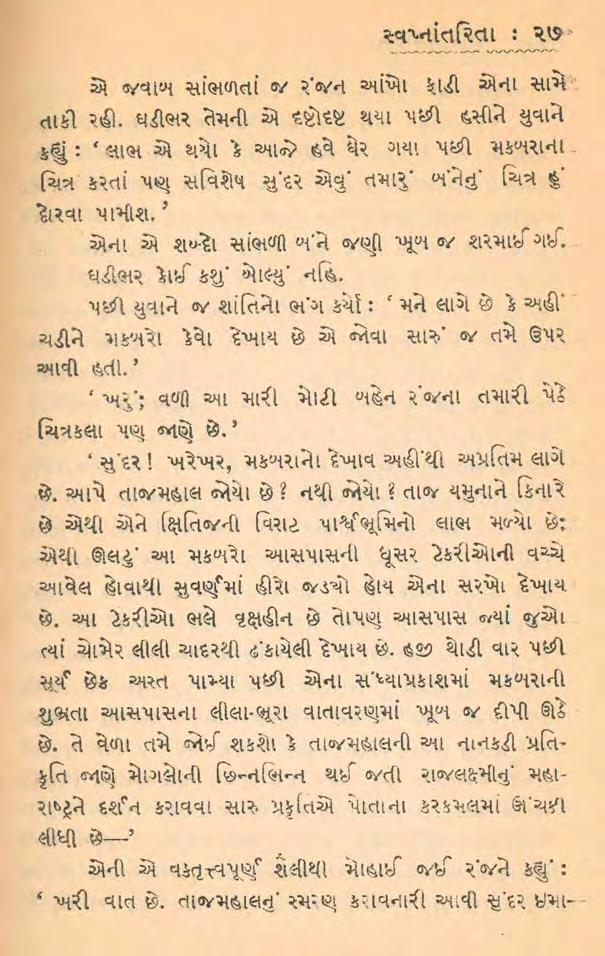 સ્વપ્નાંતરિતા : ૨૭
એ જવાબ સાંભળતાં જ રંજન આંખો ફાડી એના સામે
તાકી રહી. ઘડીભર તેમની એ દષ્ટોદષ્ટ થયા પછી હસીને યુવાને
કહ્યું : ‘ લાભ એ થયો કે આજે હવે ઘેર ગયા પછી મકબરાના
ચિત્ર કરતાં પણ સવિશેષ સુંદર એવું તમારું બંનેનું ચિત્ર હું
દોરવા પામીશ. ’
એના એ શબ્દો સાંભળી બંને જણી ખૂબ જ શરમાઈ ગઈ.
ઘડીભર કોઈ કશું બોલ્યું નહિ.
પછી યુવાને જ શાંતિનો ભંગ કર્યો : ‘ મને લાગે છે કે અહીં
ચડીને મકબરો કેવો દેખાય છે એ જોવા સારું જ તમે ઉપર
આવી હતી. ’
‘ ખરું; વળી આ મારી મોટી બહેન રંજના તમારી પેઠે
ચિત્રકલા પણ જાણે છે. ’
‘ સુંદર ! ખરેખર, મકબરાનો દેખાવ અહીંથી અપ્રતિમ લાગે
છે. આપે તાજમહાલ જોયો છે ? નથી જોયો ? તાજ યમુનાને કિનારે
છે એથી એને ક્ષિતિજની વિરાટ પાર્શ્વભૂમિનો લાભ મળ્યો છે;
એથી ઊલટું આ મકબરો આસપાસની ધૂસર ટેકરીઓની વચ્ચે
આવેલ હોવાથી સુવર્ણમાં હીરો જડ્યો હોય એના સરખો દેખાય
છે. આ ટેકરીઓ ભલે વૃક્ષહીન છે તોપણ આસપાસ જ્યાં જુઓ
ત્યાં ચોમેર લીલી ચાદરથી ઢંકાયેલી દેખાય છે. હજી થોડી વાર પછી
સૂર્ય છેક અસ્ત પામ્યા પછી એના સંધ્યાપ્રકાશમાં મકબરાની
શુભ્રતા આસપાસના લીલા-ભૂરા વાતાવરણમાં ખૂબ જ દીપી ઊઠે
છે. તે વેળા તમે જોઈ શકશો કે તાજમહાલની આ નાનકડી પ્રતિ-
કૃતિ જાણે મોગલોની છિન્નભિન્ન થઈ જતી રાજલક્ષ્મીનું મહા-
રાષ્ટ્રને દર્શન કરાવવા સારુ પ્રકૃતિએ પોતાના કરકમલમાં ઊંચકી
લીધી છે—’
એની એ વકતૃત્ત્વપૂર્ણ શૈલીથી મોહાઈ જઈ રંજને કહ્યું :
‘ ખરી વાત છે. તાજમહાલનું સ્મરણ કરાવનારી આવી સુંદર ઇમા-